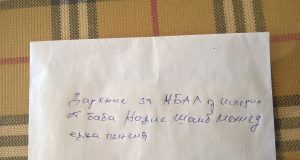 Дарение за МБАЛ гр Исперих
от баба Надие Шаиб Мехмед
една пенсия